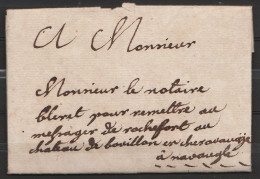 A Monsieur
Monsieur le notaire
bleret pour remettre au
messager de rochefort au
chateau de bouillon en
à navaugle